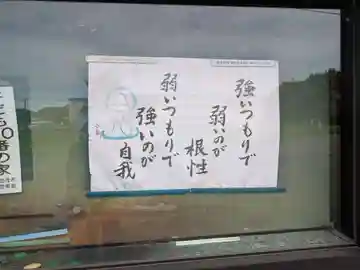 強いつもりで
弱いのが
根性
弱いつもりで
強いのが
自我
こども110番の家